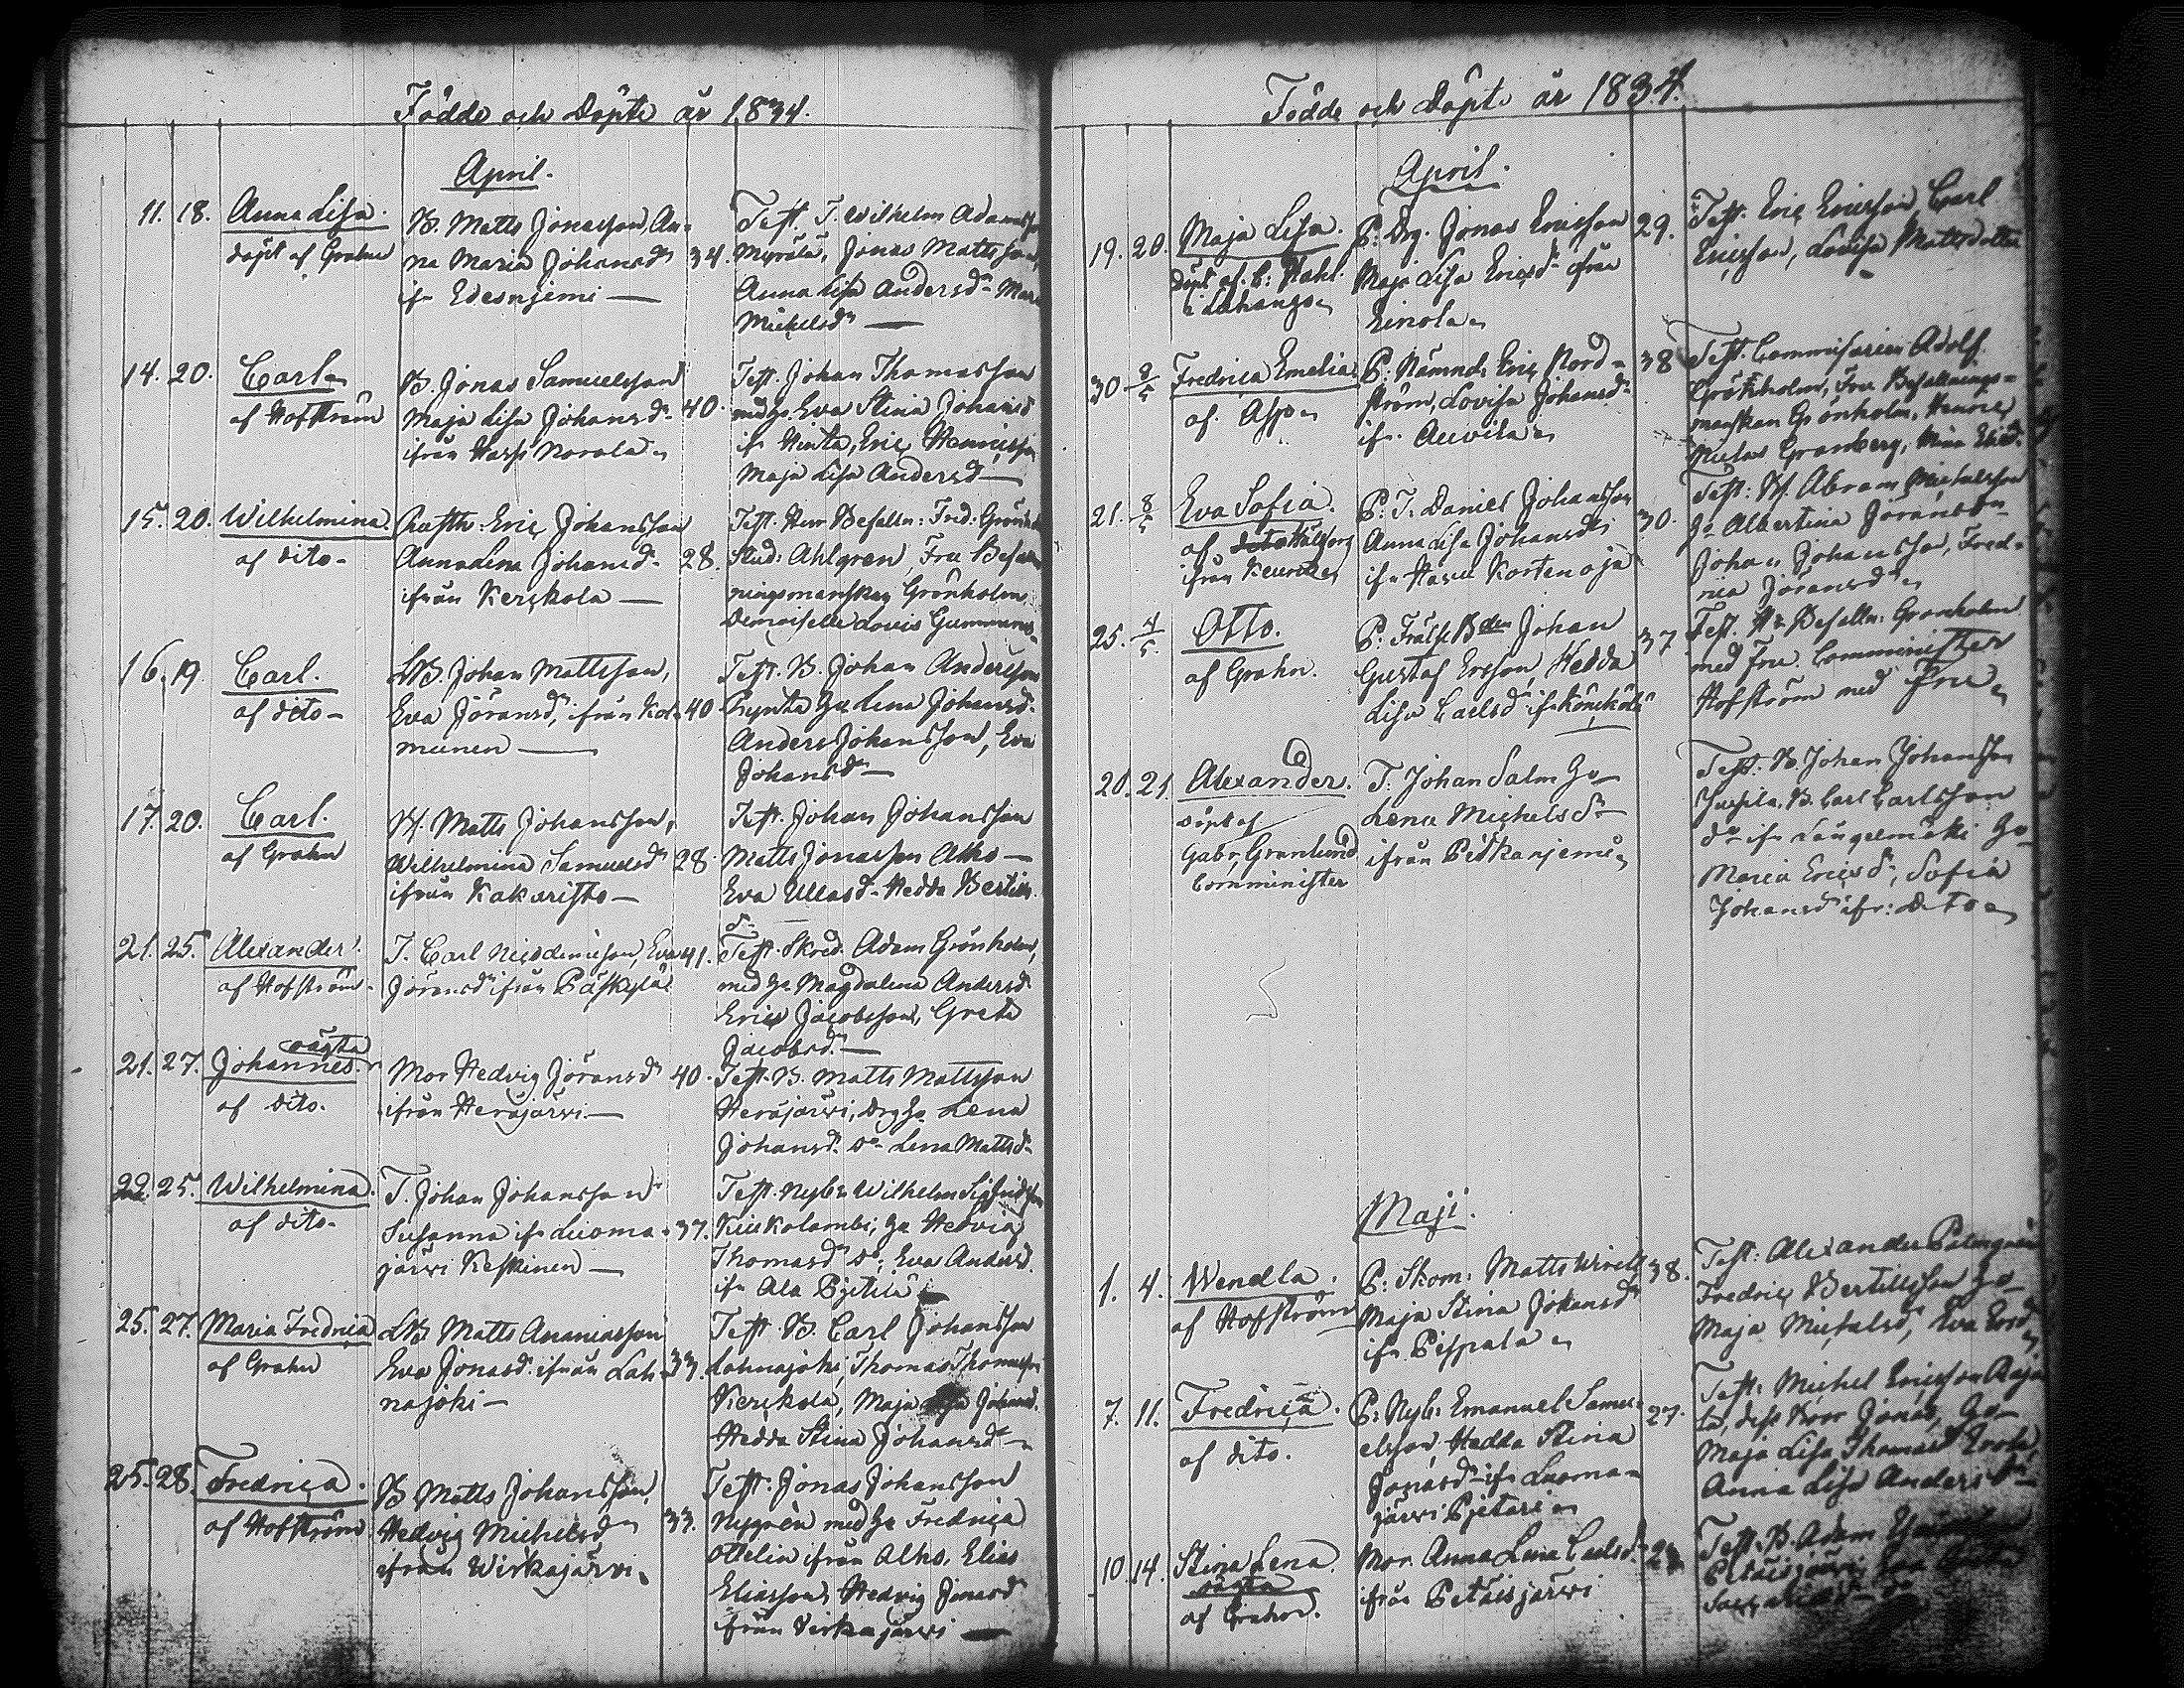 Födde och Döpte år 1834.
April.
11. 18. Anna Lisa.
döpt af Grahn
B. Matts Jonasson, An-
na Maria Johansdr
ifr Edesnjemi —
34.
Test. T. Wilhelm Adamsson
Jonas Mattsson,
Anna Lisa Andersdr
Michelsdr —
14. 20. Carl
af Hofström
B. Jonas Samuelsson
Maja Lisa Johansdr
ifrån Harsi Norola
40.
Test. Johan Thomasson
med H. Eva Stina Johansd
ifr Eric Henricsson
Maja Lisa Andersd —
15. 20. Wilhelmina.
af dito-
Eric Johansson
Anna Lena Johansd-
ifrån Kerskola —
28.
Test. Herr Befalln: Fred: Grönholm
Stud: Ahlgren, Fru Befall
ningsmanskan Grönholm
Demoiselle Lovis
16. 19. Carl.
af dito-
LB. Johan Mattsson,
Eva Jöransdr, ifrån Kol-
munen —
40
Test. B. Johan Andersson
Hu Lena Johansd.
Anders Johansson, Eva
Johansdr —
17. 20. Carl.
af Grahn
Matts Johansson,
Wilhelmina Samuelsdr
ifrån Kakaristo —
28.
Test. Johan Johansson
Matts Jonasson Alho —
Eva Ullasd- Hedda Bertils
dr
21. 25. Alexander.
af Hofström-
T. Carl Nicodemusson, Eva
Jöransdr ifrån Päskylä
41.
Test. Skred. Adam Grönholm,
med H. Magdalena Andersd
Eric Jacobsson, Greta
Jacobsd. —
21. 27. Johannes. oägta
af dito.
Mor Hedvig Jöransdr
ifrån Herajärvi —
40.
Test. B. Matts Mattsson
Herajärvi, Drg H. Lena
Johansd. Do Lena Mattsd-
22. 25. Wilhelmina.
af dito-
T. Johan Johansson
Susanna ifr Luoma-
järvi Keskinen —
37.
Test. Nyb: Wilhelm Sigfridsson
Kuikolambi, H. Hedvig
Thomasd Do; Eva Andersd.
ifr Ala Pjetilä
25. 27. Maria Fredrica
af Grahn
LB Matts Ananiasson
Eva Jonasd. ifrån Lah-
najoki —
33.
Test. B. Carl Johansson
Lahnajoki, Thomas Thomasson
Kerskola, Maja Johansd.
Hedda Stina Johansd —
25. 28. Fredrica.
af Hofström
B Matts Johansson,
Hedvig Michelsdr
ifrån Wirkajärvi.
33.
Test. Jonas Johansson
Nygrén med H. Fredrica
Ottelin ifrån Alho, Elias
Eliasson, Hedvig Jonasd
ifrån Virkajärvi —
Födde och Döpte år 1834.
April.
19. 20. Maja Lisa.
döpt af C: Stahl.
i Lahango
P. Drg. Jonas Ericsson
Maja Lisa Ericsdr från
Einola
29.
Test. Eric Ericsson, Carl
Ericsson, Lovisa Mattsdotter
30 8/5 Fredrica Emelia
af. Asp
P: Nämnd: Eric Nord-
ström, Lovisa Johansd-
ifr. Auvila
38
Test. Commissarien Adolf
Grönholm, Fru Befallnings-
manskan Grönholm, Henric
Granberg,
21. 8/5 Eva Sofia.
af
ifrån Keuru
P: T: Daniel Johansson
Anna Lisa Johansdr
ifr Kortenoja
30.
Test: Abram Michelsson
H. Albertina Jöransdr
Johan Johansson, Fred-
rica Jöransdr
25. 4/5. Otto.
af Grahn.
P: Frälse Bdn Johan
Gustaf Ersson, Hedda
Lisa Carlsd ifr
37.
Test. Hr Befalln: Grönholm
med Fru. Comminister
Hofström med Fru
20. 21. Alexander.
döpt af
Gabr. Granlund
Comminister
T. Johan Salm H.
Lena Michelsdr
ifrån Pitkänjemi
Test: B. Johan Johansson
B. Carl Carlsson
do ifr Längelmäki H.
Maria Ericsd, Sofia
Johansd ifr: Dito
Maji.
1. 4. Wendla.
af Hofström
P: Skom: Matts
Maja Stina Johansdr
ifr Pispala
38.
Test: Alexander Palmgren
Fredric Bertillsson H.
Maja Michelsd, Eva Ersd
7. 11. Fredrica.
af dito.
P: Nyb: Emanuel Samu-
elsson, Hedda Stina
Jonasd ifr Luoma-
järvi Pjetari
27.
Test: Michel Ericsson Raja
la, dess Bror Jonas, H.
Maja Lisa Thomasd Erola,
Anna Lisa Andersdr
10. 14. Stina Lena.
oägta
af Grahn.
Mor. Anna Lena Carlsd.
ifrån Petäisjärvi
Test: B. Adam
Petäisjärvi